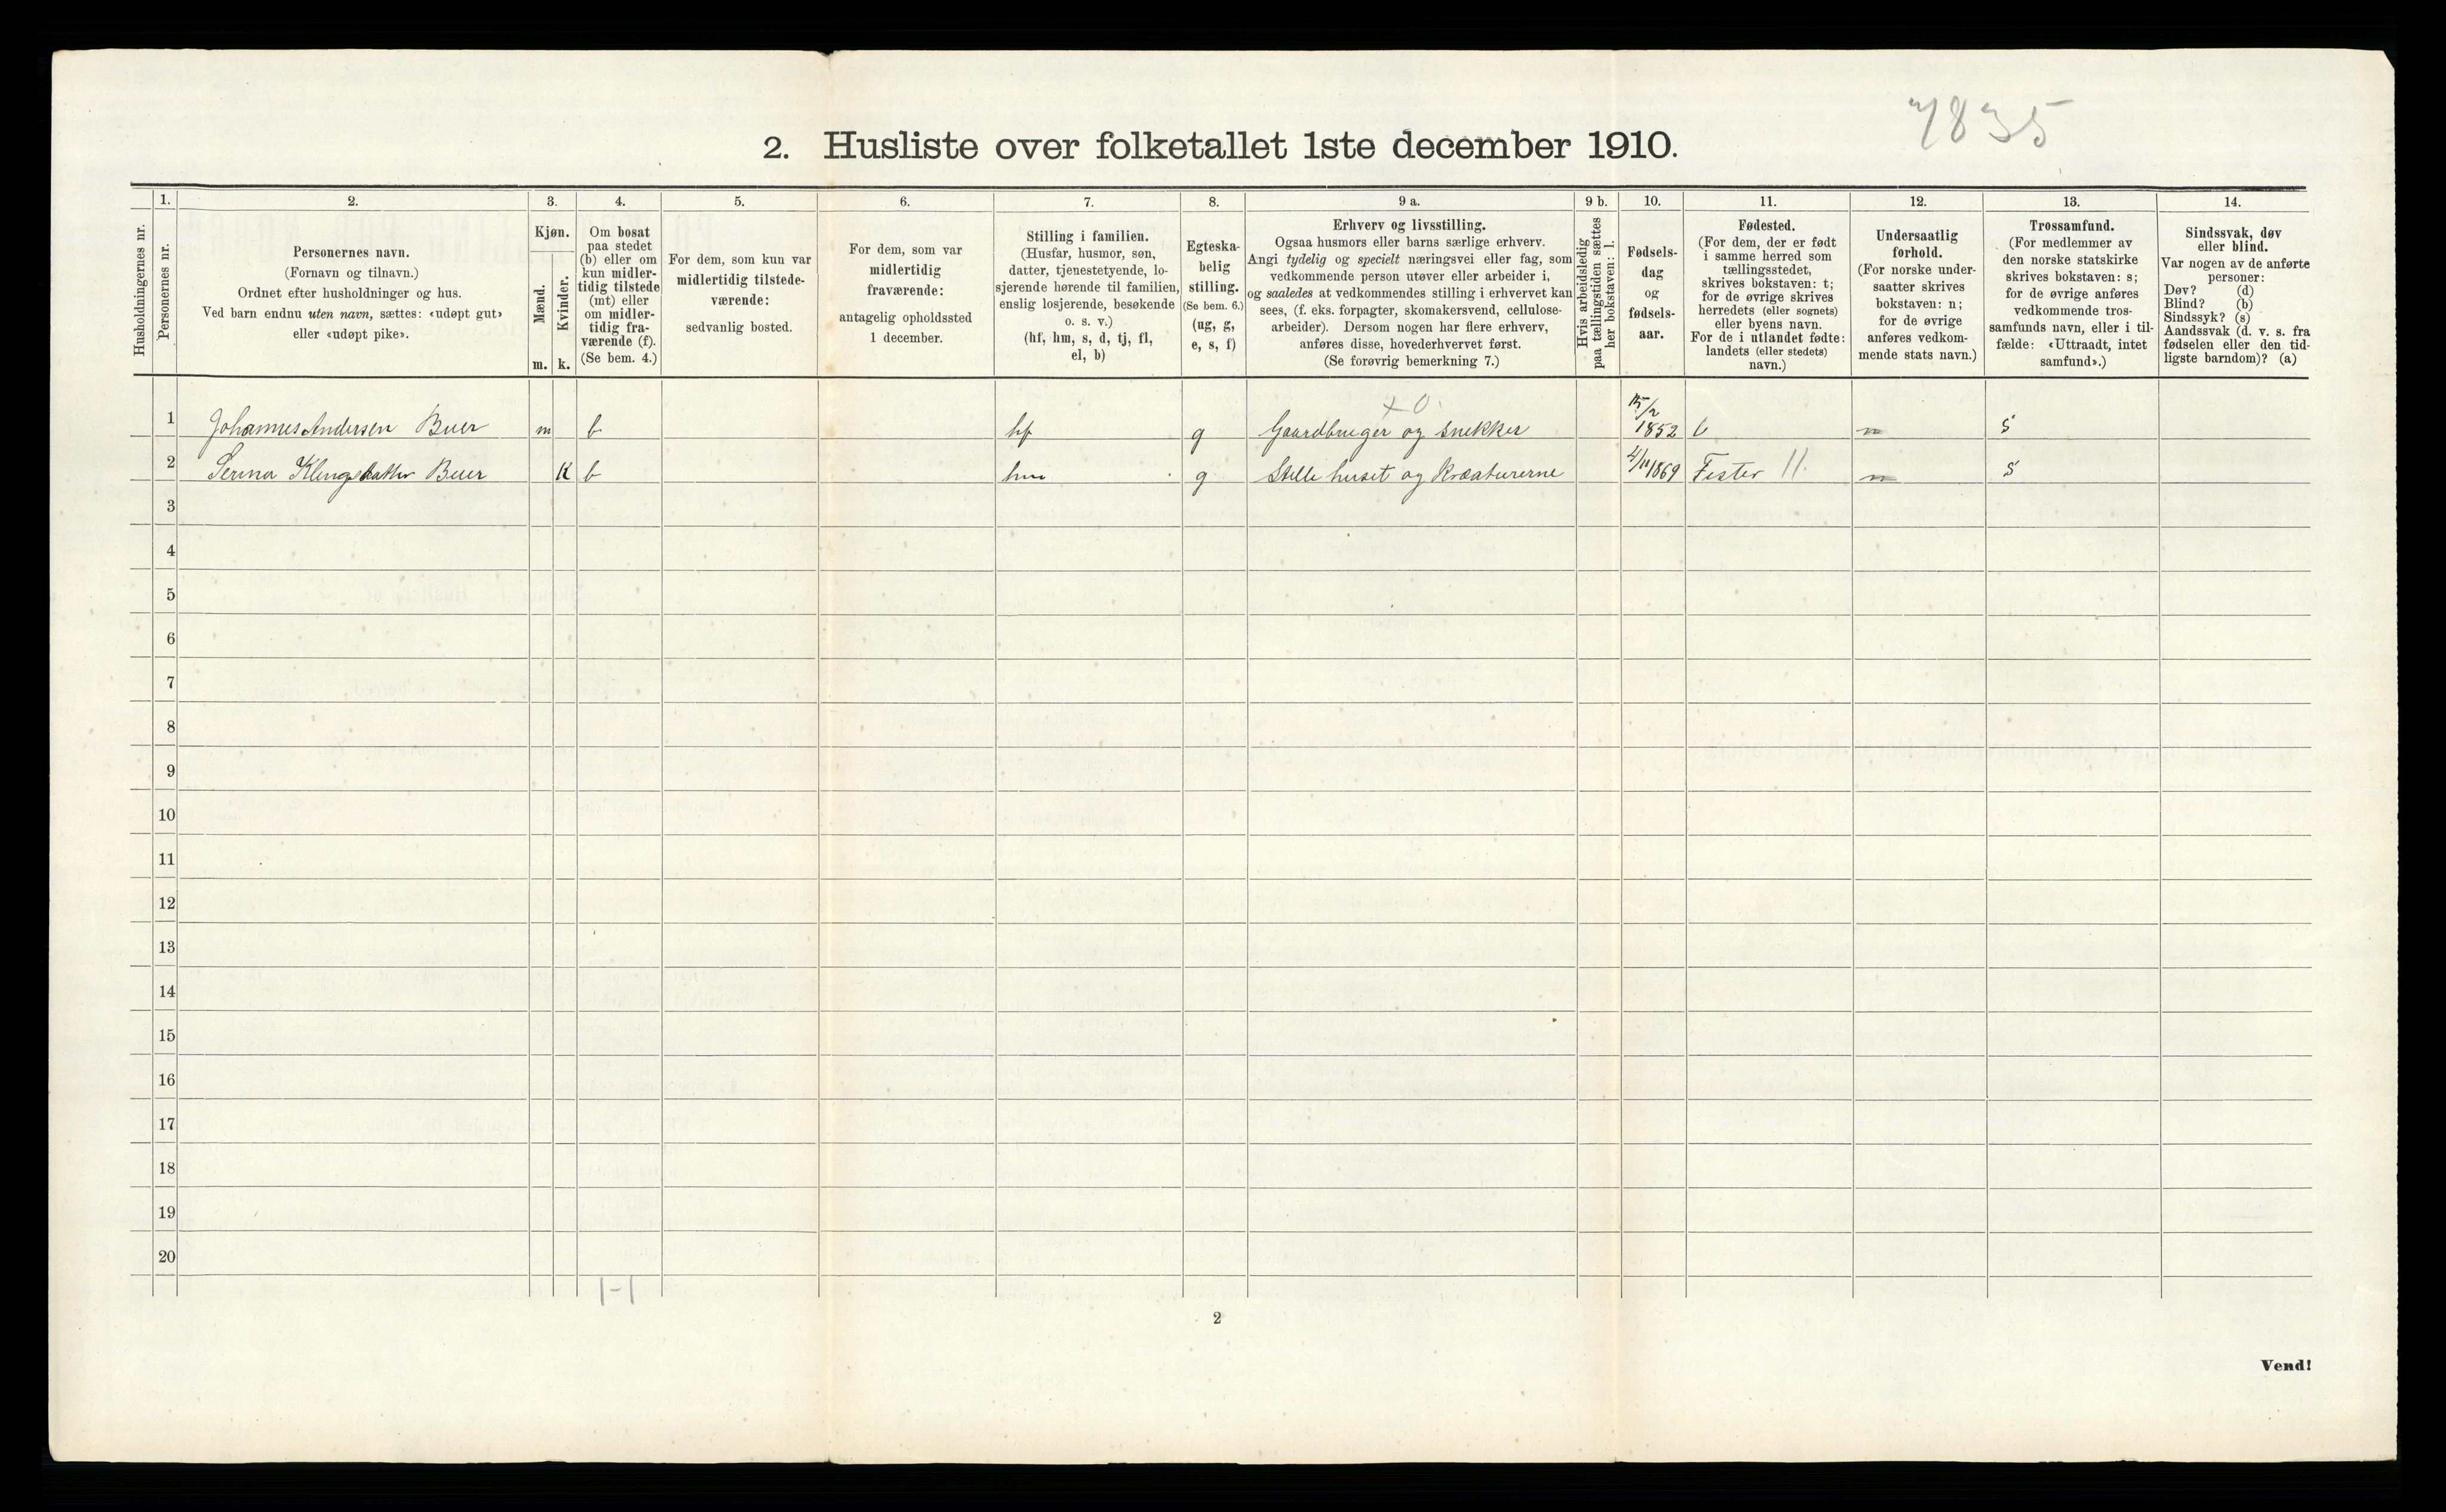 7835
2. Husliste over folketallet 1ste december 1910.
1. 2. 3. 4. 5. 6. 7. 8. 9 a. 9 b. 10. 11. 12. 13. 14.
Husholdningernes nr.
Personernes nr.
Personernes navn.
(Fornavn og tilnavn.)
Ordnet efter husholdninger og hus.
Ved barn endnu uten navn, sættes: «udøpt gut»
eller «udøpt pike».
Kjøn.
Mænd.
Kvinder.
m. k.
Om bosat
paa stedet
(b) eller om
kun midler-
tidig tilstede
(mt) eller
om midler-
tidig fra-
værende (f).
(Se bem. 4.)
For dem, som kun var
midlertidig tilstede-
værende:
sedvanlig bosted.
For dem, som var
midlertidig
fraværende:
antagelig opholdssted
1 december.
Stilling i familien.
(Husfar, husmor, søn,
datter, tjenestetyende, lo-
sjerende hørende til familien,
enslig losjerende, besøkende
o. s. v.)
(hf, hm, s, d, tj, fl,
el, b)
Egteska-
belig
stilling.
(Se bem. 6.)
(ug, g,
e, s, f)
Erhverv og livsstilling.
Ogsaa husmors eller barns særlige erhverv.
Angi tydelig og specielt næringsvei eller fag, som
vedkommende person utøver eller arbeider i,
og saaledes at vedkommendes stilling i erhvervet kan
sees, (f. eks. forpagter, skomakersvend, cellulose-
arbeider). Dersom nogen har flere erhverv,
anføres disse, hovederhvervet først.
(Se forøvrig bemerkning 7.)
Hvis arbeidsledig
paa tællingstiden sættes
her bokstaven: l.
Fødsels-
dag
og
fødsels-
aar.
Fødested.
(For dem, der er født
i samme herred som
tællingsstedet,
skrives bokstaven: t;
for de øvrige skrives
herredets (eller sognets)
eller byens navn.
For de i utlandet fødte:
landets (eller stedets)
navn.)
Undersaatlig
forhold.
(For norske under-
saatter skrives
bokstaven: n;
for de øvrige
anføres vedkom-
mende stats navn.)
Trossamfund.
(For medlemmer av
den norske statskirke
skrives bokstaven: s;
for de øvrige anføres
vedkommende tros-
samfunds navn, eller i til-
fælde: «Uttraadt, intet
samfund».)
Sindssvak, døv
eller blind.
Var nogen av de anførte
personer:
Døv? (d)
Blind? (b)
Sindssyk? (s)
Aandssvak (d. v. s. fra
fødselen eller den tid-
ligste barndom)? (a)
+ 0
1 Johannes Andersen Buer m b hf g Gaardbruger og snekker 15/2 1852 t n s
2 Serina Klengsdatter Buer K b hm g Stelle huset og Kreaturerne 4/11 1869 Fister 11 n s
3
4
5
6
7
8
9
10
11
12
13
14
15
16
17
18
19
20
1-1
2
Vend!